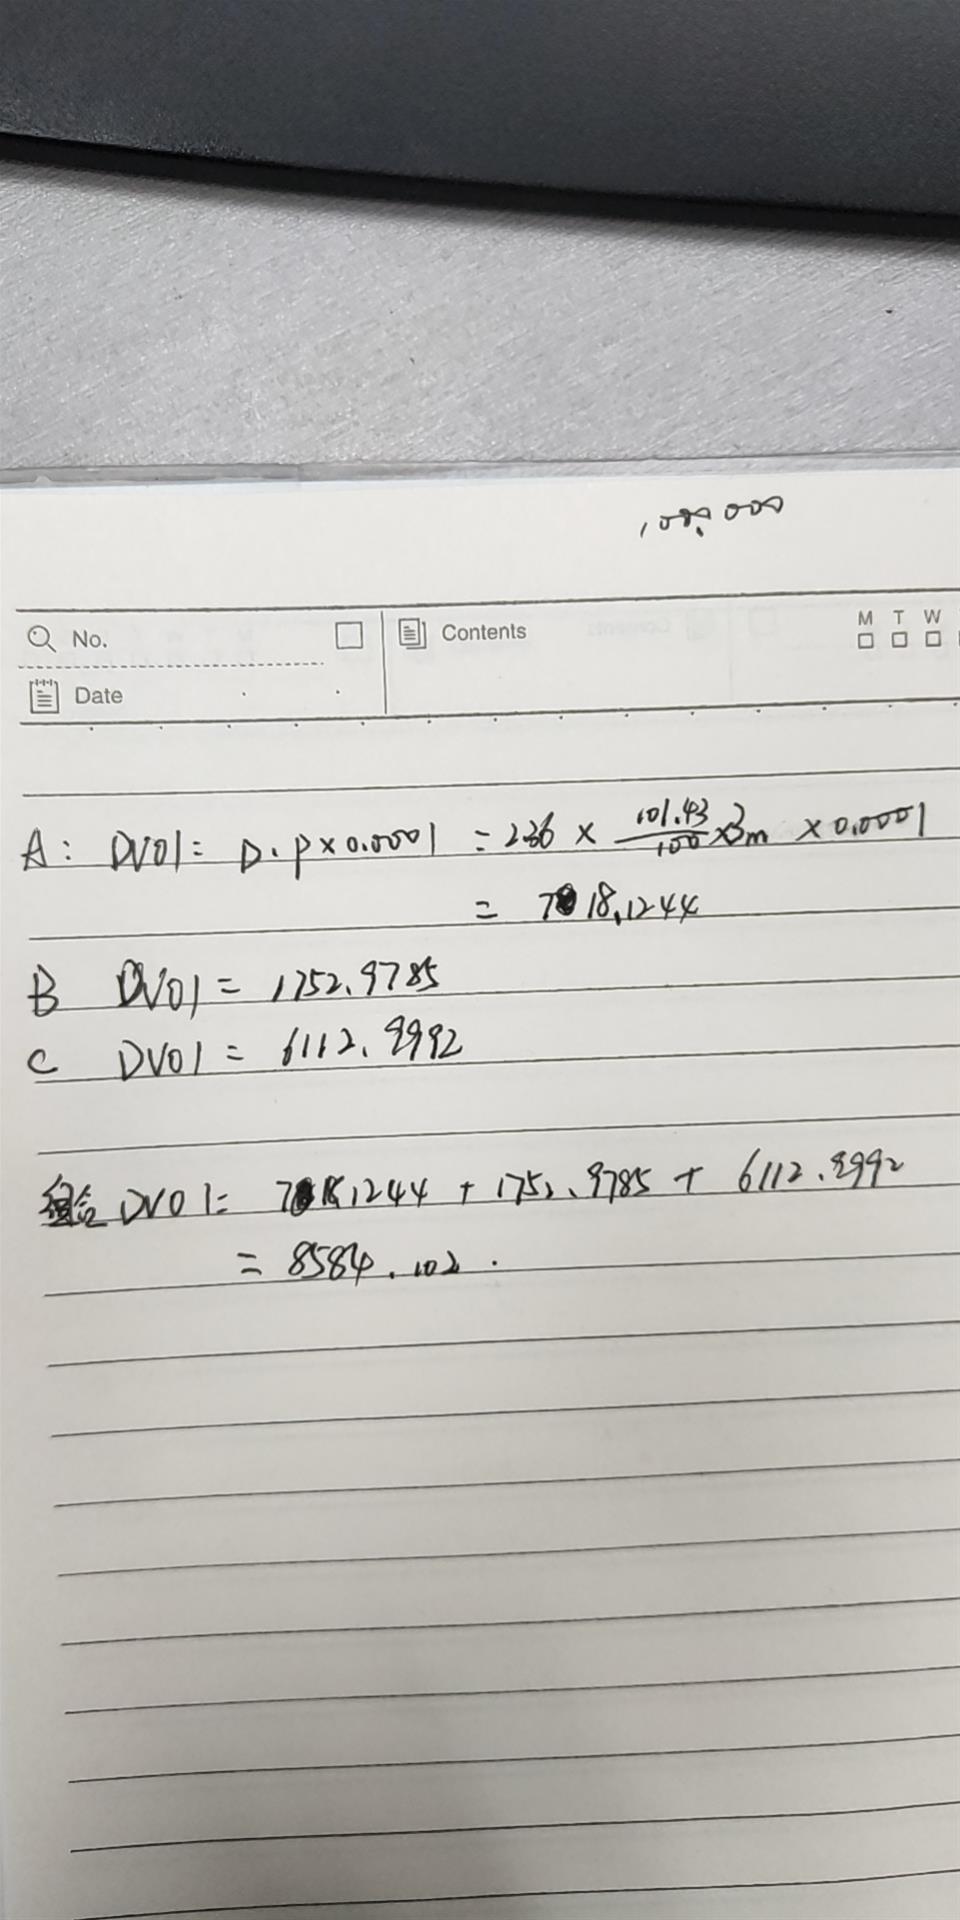 100,000
No.
Contents
M T W
Date
A: DV01 = D·P×0.0001 = 2.36 × 101.43/100 ×3m ×0.0001
= 718.1244
B DV01 = 1752.9785
C DV01 = 6112.9992
组合DV01= 718.1244 + 1752.9785 + 6112.9992
= 8584.102.